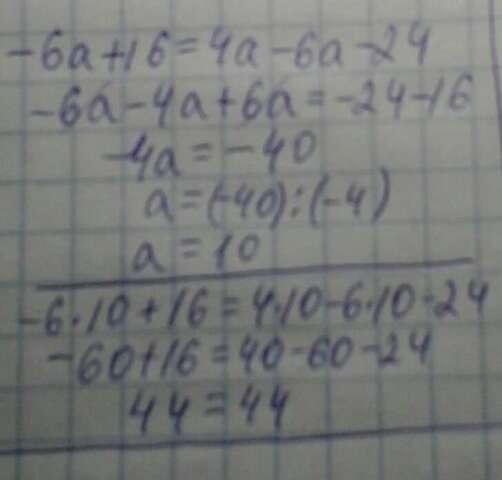 -6a+16=4a-6a-24
-6a-4a+6a=-24-16
-4a=-40
a=(-40):(-4)
a=10
-6·10+16=4·10-6·10-24
-60+16=40-60-24
44=44